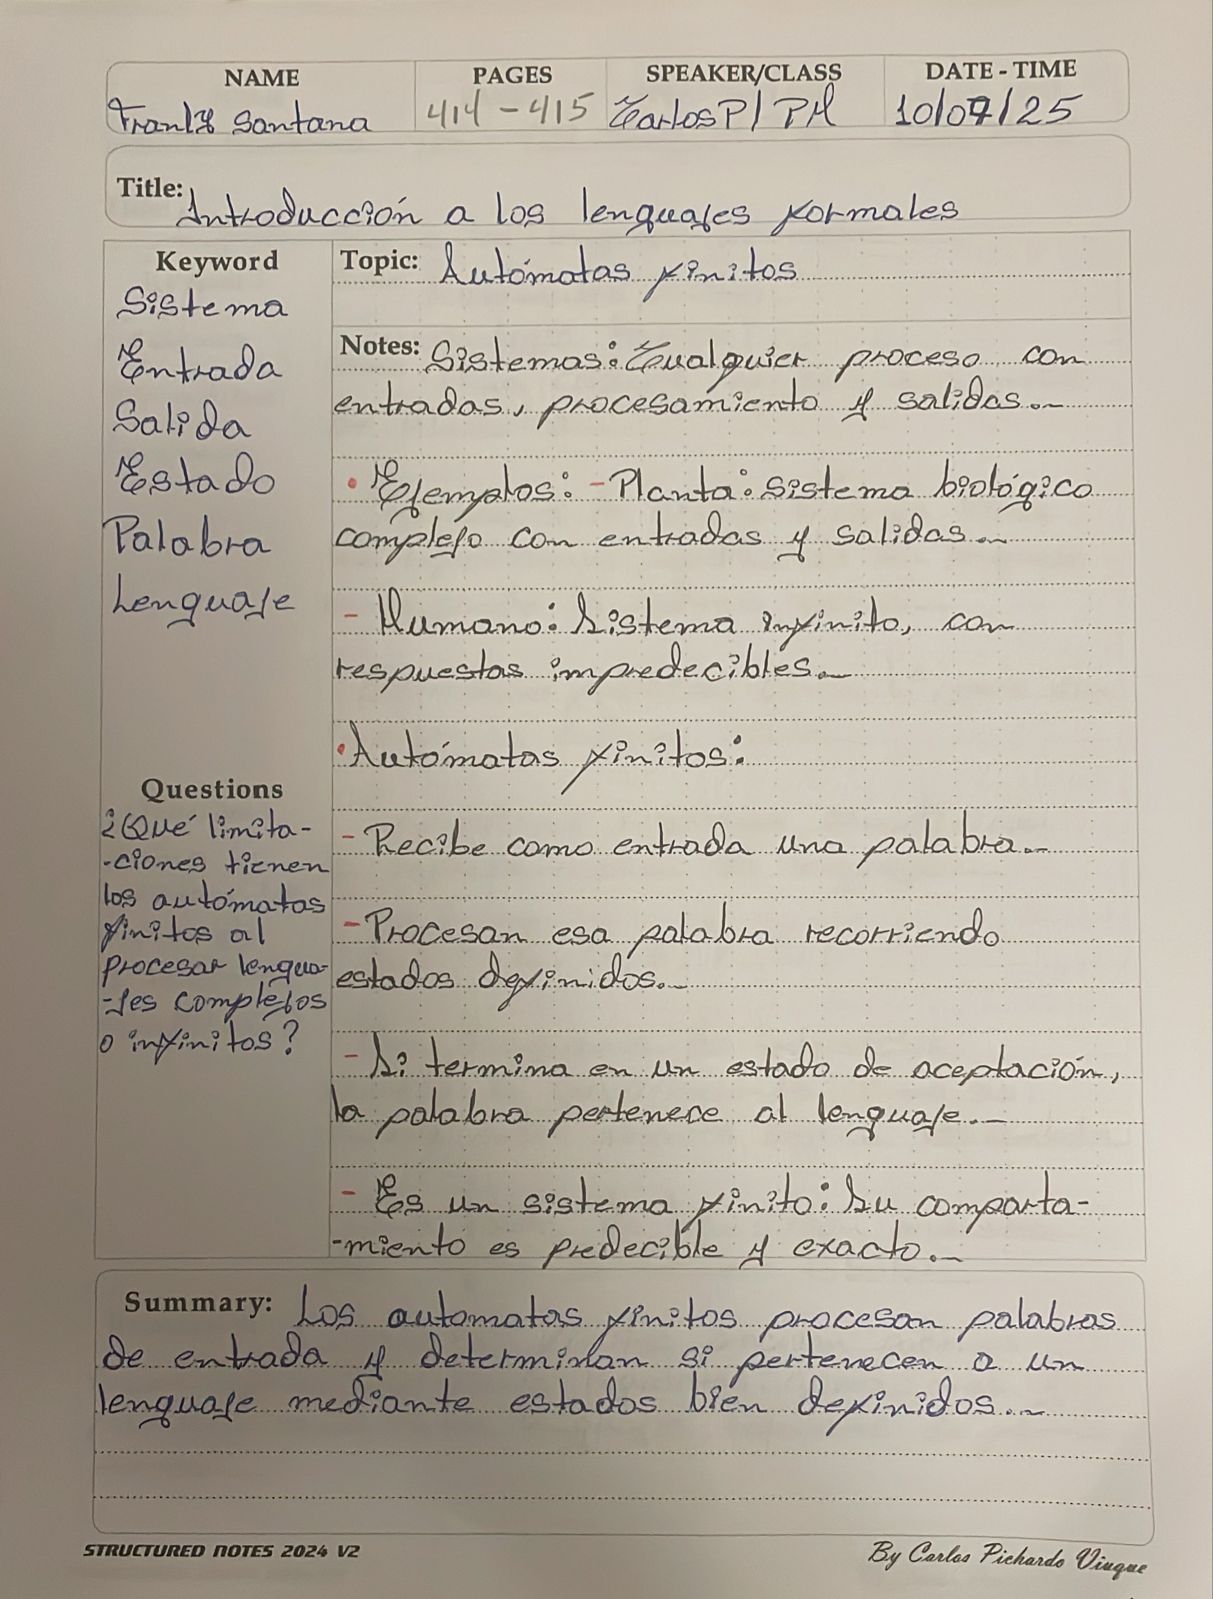 NAME PAGES SPEAKER/CLASS DATE - TIME
Santana 414 - 415 Carlos P / PM 10/07/25
Title: Introducción a los lenguajes formales
Keyword
Sistema
Entrada
Salida
Estado
Palabra
Lenguaje
Questions
¿Qué limita-
-ciones tienen
los autómatas
finitos al
procesar lengua-
-jes complejos
o infinitos?
Topic: Autómatas finitos
Notes: Sistemas: Cualquier proceso con
entradas, procesamiento y salidas.
• Ejemplos: - Planta: Sistema biológico
complejo con entradas y salidas.
- Humano: Sistema infinito, con
respuestas impredecibles.
• Autómatas finitos:
- Recibe como entrada una palabra.
- Procesan esa palabra recorriendo
estados definidos.
- Si termina en un estado de aceptación,
la palabra pertenece al lenguaje.
- Es un sistema finito: Su comporta-
-miento es predecible y exacto.
Summary: Los automatas finitos procesan palabras
de entrada y determinan si pertenecen a un
lenguaje mediante estados bien definidos.
STRUCTURED NOTES 2024 V2
By Carlos Pichardo Viuque